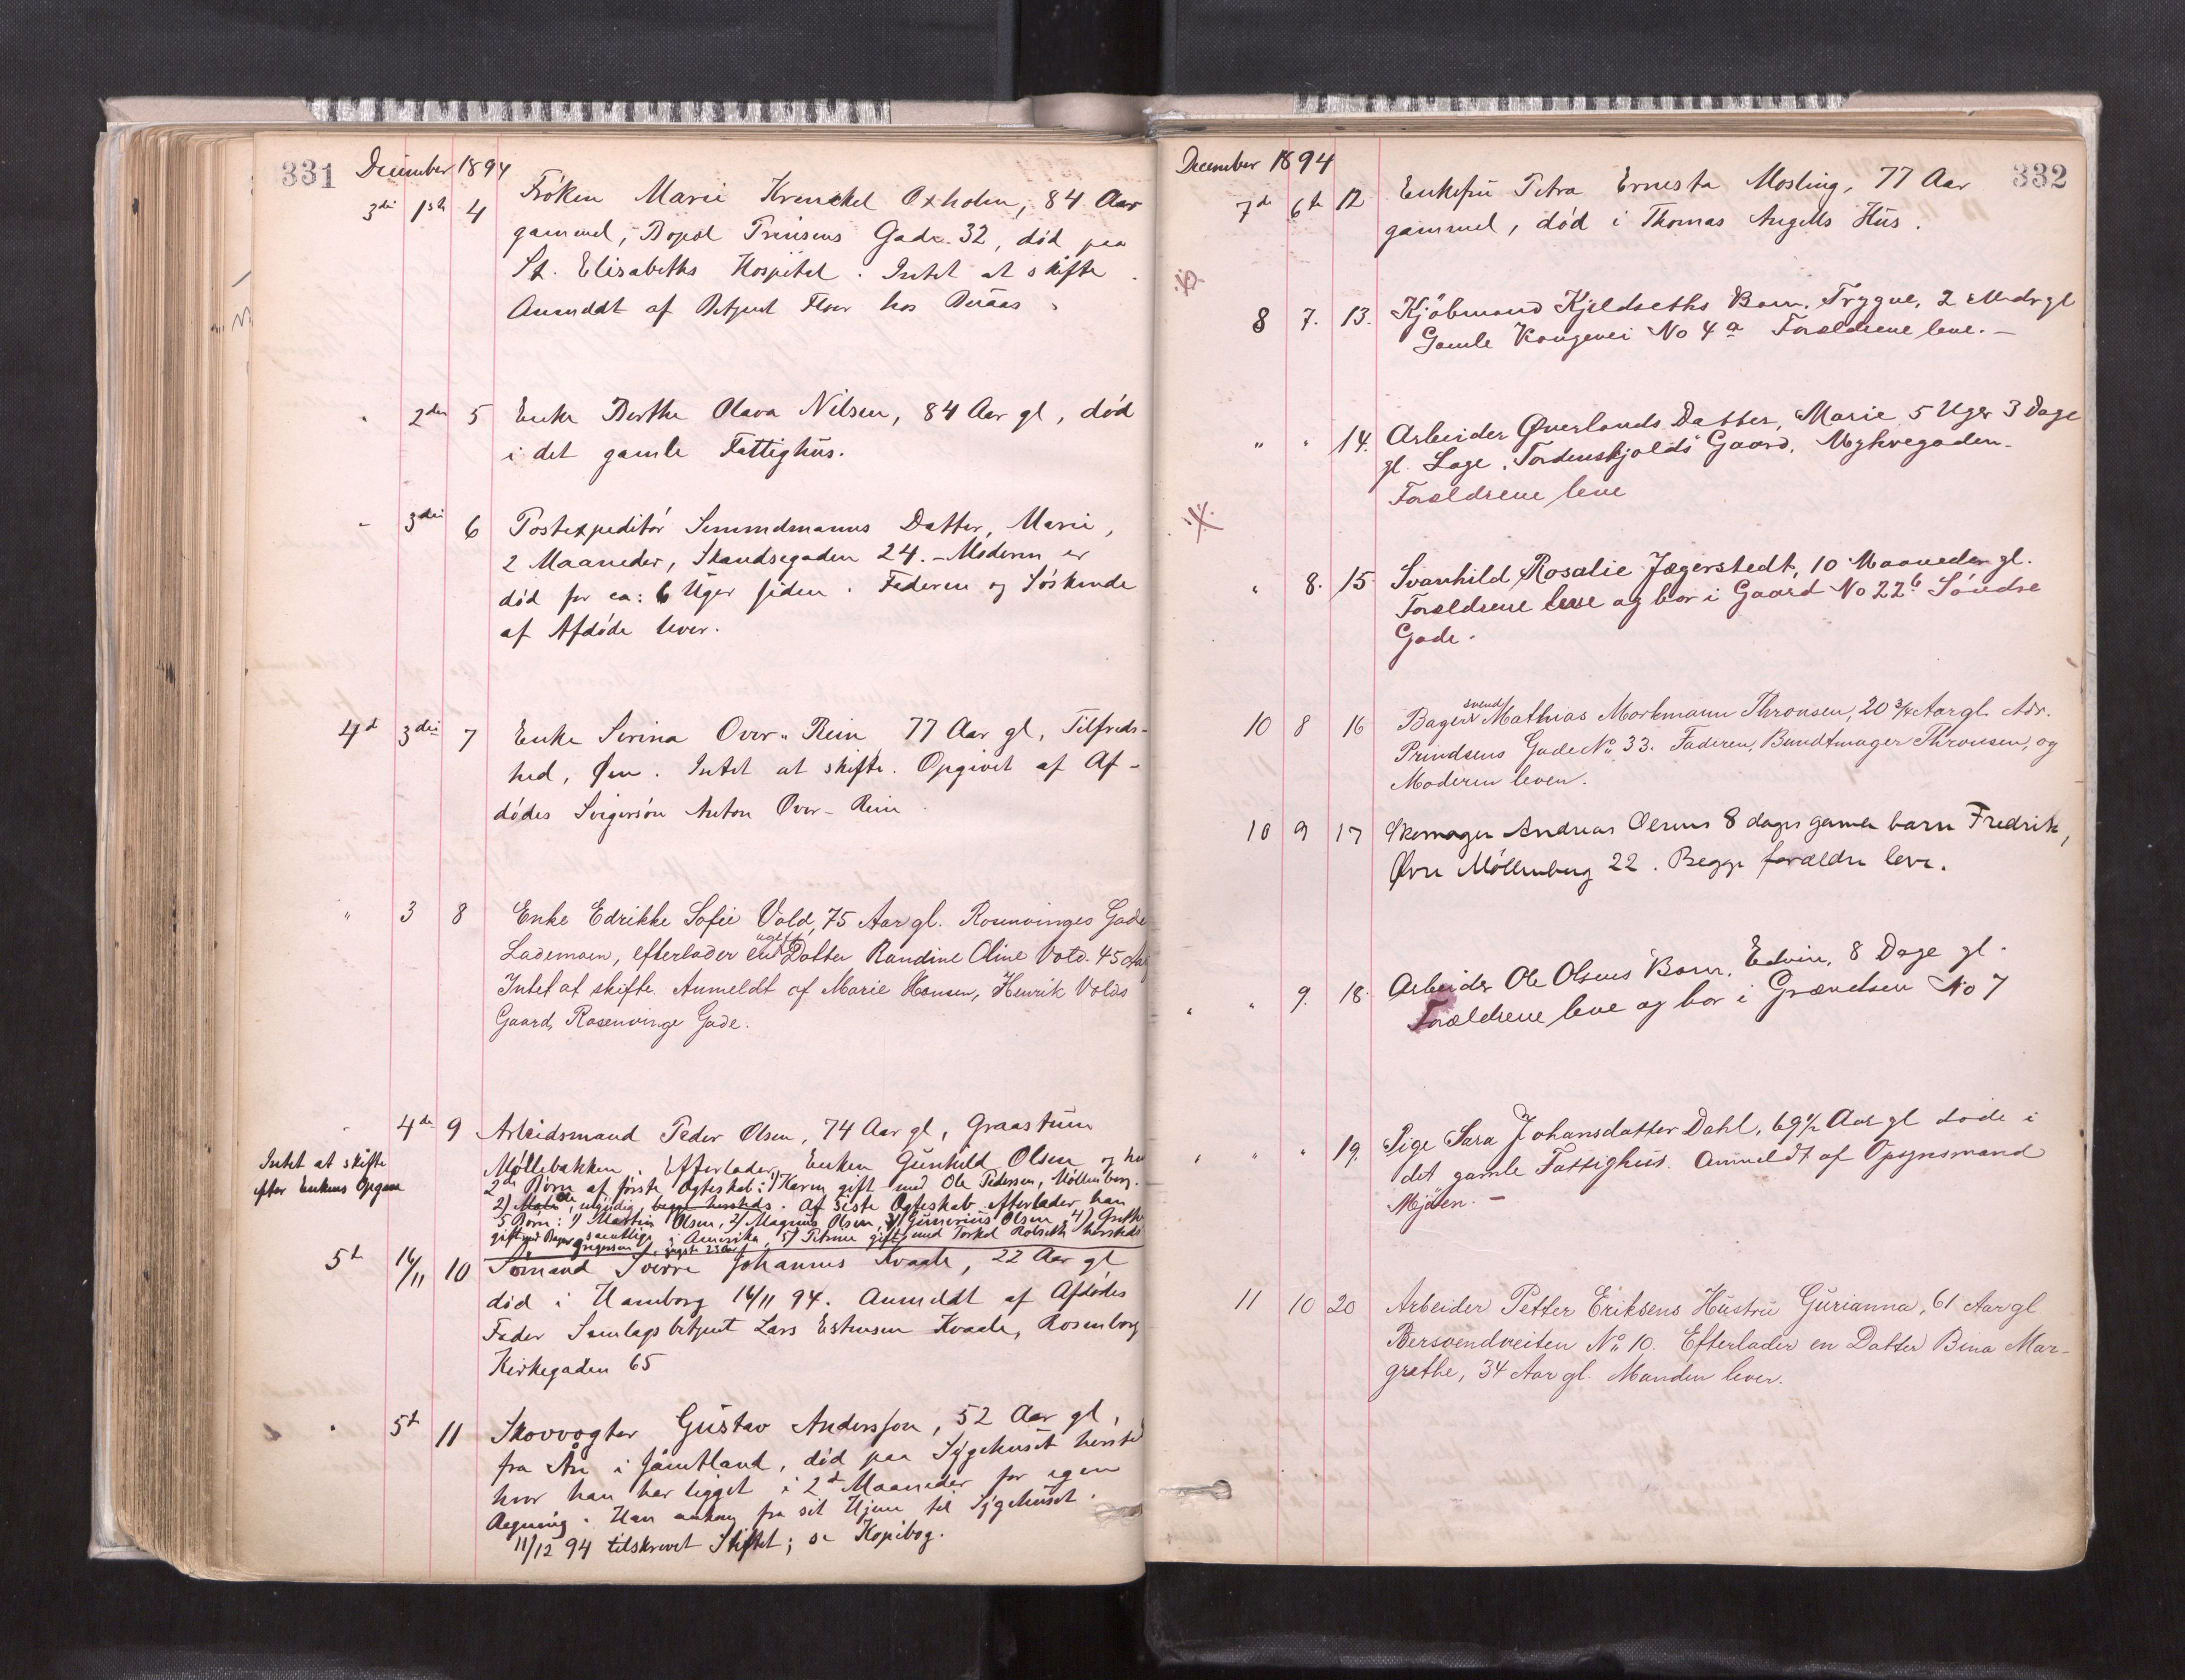 331 December 1894
3die 1ste 4 Fröken Marie Krenckel Oxholm, 84 Aar
gammel, Bopæl Prinsens Gade 32, död paa
St. Elisabeths Hospital. Intet at skifte.
Anmeldt af Betjent Floer hos Buaas.
" 2den 5 Enke Berthe Olava Nilsen, 84 Aar gl, död
i det gamle Fattighus.
" 3die 6 Postexpeditör Datter, Marie,
2 Maaneder, Skandsegaden 24. - Moderen er
död for ca: 6 Uger siden. Faderen og Söskende
af Afdöde lever.
4d 3die 7 Enke Serina Over-Rein 77 Aar gl, Tilfreds-
hed, Øen. Intet at skifte. Opgivet af Af-
dödes Svigersön Anton Over-Rein
" 3 8 Enke Edrikke Sofie Vold, 75 Aar gl. Rosenvinges Gade
Lademoen, efterlader en ugift Datter Randine Oline Vold. 45 Aar
Intet at skifte. Anmeldt af Marie Hansen, Henrik Volds
Gaard, Rosenvinge Gade.
" 4de 9 Arbeidsmand Peder Olsen, 74 Aar gl, Graastuen
Intet at skifte
efter Enkens Opgave
Möllebakken. Efterlader Enken Gunhild Olsen og har
2de Börn af förste Ægteskab: 1) Karen gift med Ole Pedersen, Möllenberg.
2) umyndig, begge hersteds. Af siste Ægteskab efterlader han
5 Börn: 1) Martin Olsen, 2) Magnus Olsen, 3) Gunerius Olsen, 4) Grethe
gift med Bager Gregersen samtlige i Amerika, 5) Petrine gift med Torkel hersteds
yngste 23 Aar
5te 16/11 10 Sömand Sverre Johannes Kvaale, 22 Aar gl
död i Hamborg 16/11 94. Anmeldt af Afdödes
Fader Samlagsbetjent Lars Estensen Kvaale, Rosenborg
Kirkegaden 65
" 5te 11 Skovvogter Gustav Andersson, 52 Aar gl,
fra Åre i Jämtland, död paa Sygehuset hersted
hvor han har ligget i 2de Maaneder for egen
Regning. Han ankom fra sit Hjem til Sygehuset.
11/12 94 tilskrevet Stiftet; se Kopibog.
December 1894 332
7de 6te 12 Enkefru Petra Ernesta Mosling, 77 Aar
gammel, död i Thomas Angells Hus.
8 7. 13. Kjöbmand Kjeldseths Barn, Trygve, 2 Mdr gl
Gamle Kongevei No 4a Forældrene leve. -
" " 14. Arbeider Øverlands Datter, Marie 5 Uger 3 Dage
gl. Lage. Tordenskjolds Gaard, Nyhvegaden.
Forældrene leve
" 8. 15 Svanhild Rosalie Jægerstedt, 10 Maaneder gl.
Forældrene leve og bor i Gaard No 22b Söndre
Gade.
10 8 16 Bagersvend Mathias Morkmann Thronsen, 20 3/4 Aar gl. Adr.
Prindsens Gade No 33. Faderen, Bundtmager Thronsen, og
Moderen lever.
10 9 17 Skomager Andreas Olsens 8 dages gamle barn Fredrik,
Øvre Möllenberg 22. Begge forældre leve.
" " 9. 18. Arbeider Ole Olsens Barn, Edvin, 8 Dage gl.
Forældrene leve og bor i Grændsen No 7
" " " 19. Pige Sara Johansdatter Dahl, 69 1/2 Aar gl döde i
det gamle Fattighus. Anmeldt af Opsynsmand
Mjöen. -
11 10 20 Arbeider Petter Eriksens Hustru Gurianna, 61 Aar gl
Bersvendveiten No 10. Efterlader en Datter Bina Mar-
grethe, 34 Aar gl. Manden lever.